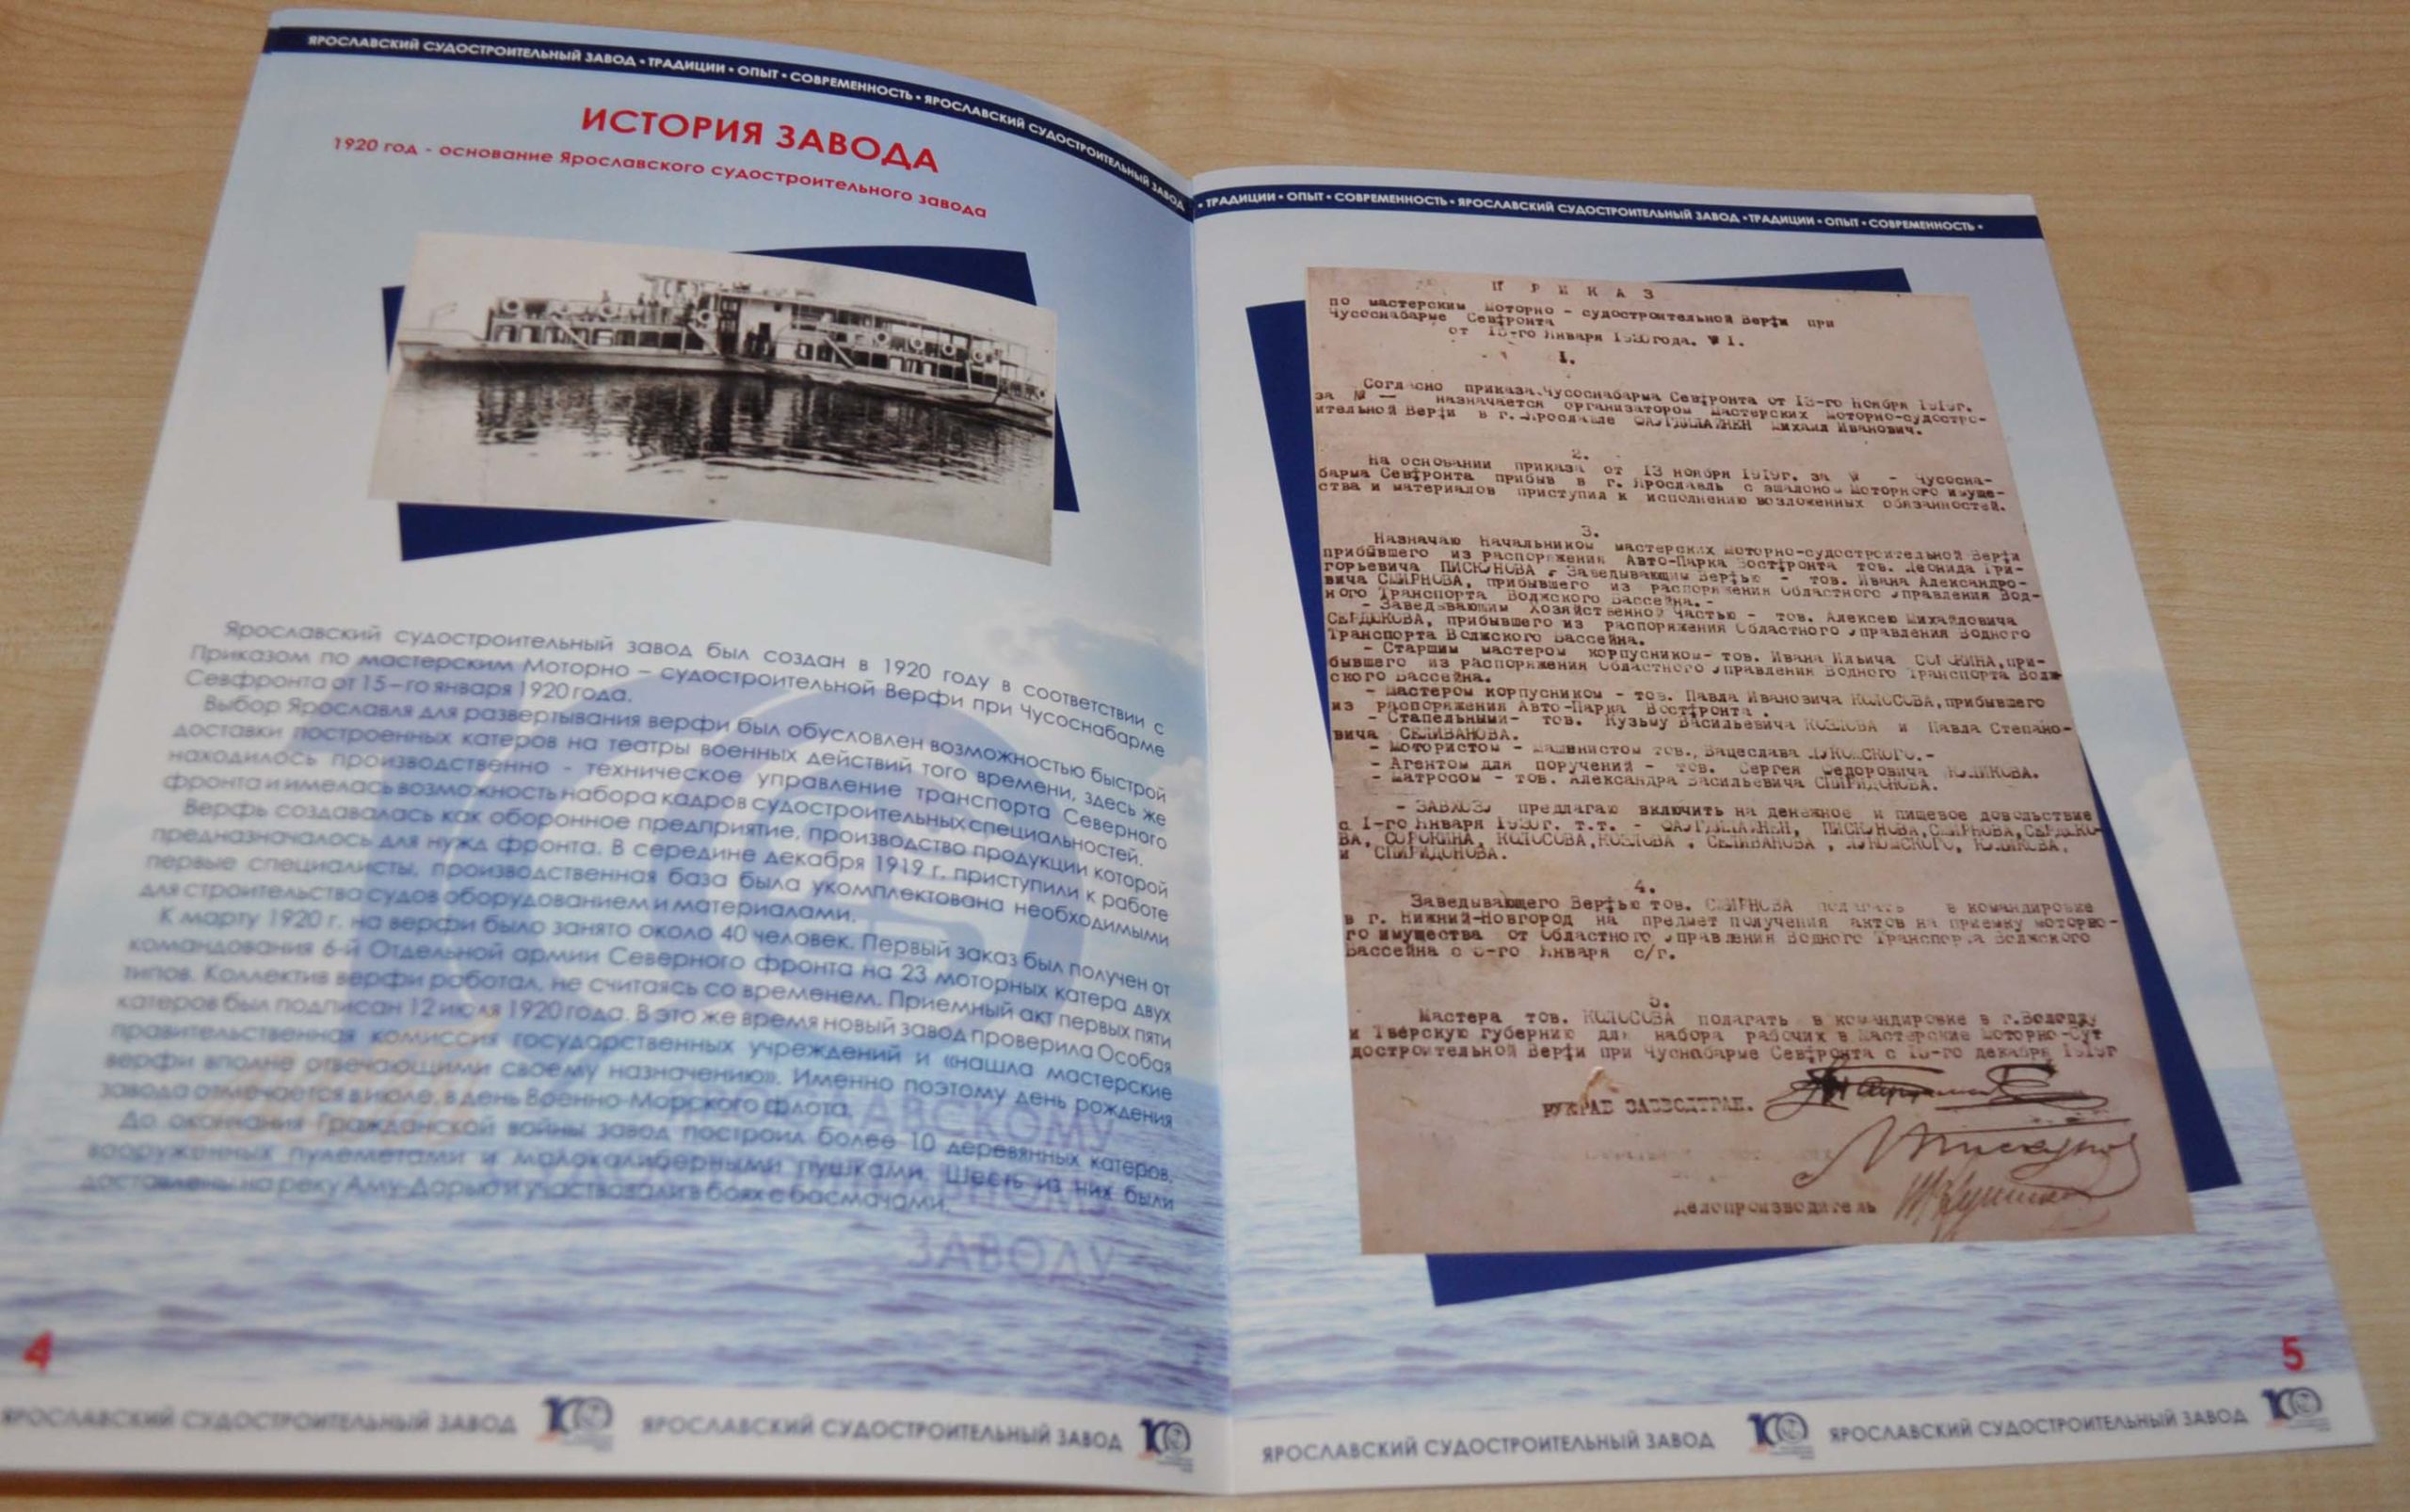 ЯРОСЛАВСКИЙ СУДОСТРОИТЕЛЬНЫЙ ЗАВОД • ТРАДИЦИИ • ОПЫТ • СОВРЕМЕННОСТЬ • ЯРОСЛАВСКИЙ СУДОСТРОИТЕЛЬНЫЙ ЗАВОД
ИСТОРИЯ ЗАВОДА
1920 год - основание Ярославского судостроительного завода
Ярославский судостроительный завод был создан в 1920 году в соответствии с
Приказом по мастерским Моторно – судостроительной Верфи при Чусоснабарме
Севфронта от 15–го января 1920 года.
Выбор Ярославля для развертывания верфи был обусловлен возможностью быстрой
доставки построенных катеров на театры военных действий того времени, здесь же
находилось производственно - техническое управление транспорта Северного
фронта и имелась возможность набора кадров судостроительных специальностей.
Верфь создавалась как оборонное предприятие, производство продукции которой
предназначалось для нужд фронта. В середине декабря 1919 г. приступили к работе
первые специалисты, производственная база была укомплектована необходимыми
для строительства судов оборудованием и материалами.
К марту 1920 г. на верфи было занято около 40 человек. Первый заказ был получен от
командования 6-й Отдельной армии Северного фронта на 23 моторных катера двух
типов. Коллектив верфи работал, не считаясь со временем. Приемный акт первых пяти
катеров был подписан 12 июля 1920 года. В это же время новый завод проверила Особая
правительственная комиссия государственных учреждений и «нашла мастерские
верфи вполне отвечающими своему назначению». Именно поэтому день рождения
завода отмечается в июле, в день Военно-Морского флота.
До окончания Гражданской войны завод построил более 10 деревянных катеров,
вооруженных пулеметами и малокалиберными пушками. Шесть из них были
доставлены на реку Аму-Дарью и участвовали в боях с басмачами.
ЗАВОДУ
4
ЯРОСЛАВСКИЙ СУДОСТРОИТЕЛЬНЫЙ ЗАВОД 100 ЯРОСЛАВСКИЙ СУДОСТРОИТЕЛЬНЫЙ ЗАВОД 100
• ТРАДИЦИИ • ОПЫТ • СОВРЕМЕННОСТЬ • ЯРОСЛАВСКИЙ СУДОСТРОИТЕЛЬНЫЙ ЗАВОД • ТРАДИЦИИ • ОПЫТ • СОВРЕМЕННОСТЬ •
П Р И К А З
по мастерским Моторно - судостроительной Верфи при
Чусоснабарме Севфронта
от 15-го Января 1920 года. № 1.
1.
Согласно приказа Чусоснабарма Севфронта от 13-го Ноября 1919г.
за № — назначается организатором Мастерских Моторно-судостро-
ительной Верфи в г. Ярославле Михаил Иванович.
2.
На основании приказа от 13 ноября 1919г. за № - Чусосна-
барма Севфронта прибыв в г. Ярославль с эшалоном Моторного имуще-
ства и материалов приступил к исполнению возложенных обязанностей.
3.
Назначаю Начальником мастерских Моторно-судостроительной Верфи
прибывшего из распоряжения Авто-Парка Востфронта тов. Леонида Гри-
горьевича ПИСКУНОВА, Заведывающим Верфью - тов. Ивана Александро-
вича СМИРНОВА, прибывшего из распоряжения Областного Управления Вод-
ного Транспорта Волжского Бассейна.-
- Заведывающим Хозяйственной Частью - тов. Алексею Михайловича
СЕРДЮКОВА, прибывшего из распоряжения Областного Управления Водного
Транспорта Волжского Бассейна.
- Старшим мастером корпусником- тов. Ивана Ильича СОРОКИНА, при-
бывшего из распоряжения Областного Управления Водного Транспорта Волж-
ского Бассейна.
- Мастером корпусником - тов. Павла Ивановича КОЛОСОВА, прибывшего
из распоряжения Авто-Парка Востфронта .
- Стапельными- тов. Кузьму Васильевича КОЗЛОВА и Павла Степано-
вича СЕЛИВАНОВА.
- Мотористом - Машенистом тов. Вацеслава
- Агентом для поручений - тов. Сергея Федоровича
- Матросом - тов. Александра Васильевича СПИРИДОНОВА.
- ЗАВХОЗУ предлагаю включить на денежное и пищевое довольствие
с 1-го Января 1920г. т.т. - ПИСКУНОВА, СМИРНОВА, СЕРДЮКО-
ВА, СОРОКИНА, КОЛОСОВА, КОЗЛОВА, СЕЛИВАНОВА,
и СПИРИДОНОВА.
4.
Заведывающего Верфью тов. СМИРНОВА полагать в командировке
в г. Нижний-Новгород на предмет получения актов на приемку моторно-
го имущества от Областного Управления Водного Транспорта Волжского
Бассейна с -го Января с/г.
5.
Мастера тов. КОЛОСОВА полагать в командировке в г.Вологду
и Тверскую губернию для набора рабочих в Мастерские Моторно-Суд
достроительной Верфи при Чуснабарме Севфронта с 15-го декабря 1919г
Делопроизводитель
5
ЯРОСЛАВСКИЙ СУДОСТРОИТЕЛЬНЫЙ ЗАВОД 100 ЯРОСЛАВСКИЙ СУДОСТРОИТЕЛЬНЫЙ ЗАВОД 100